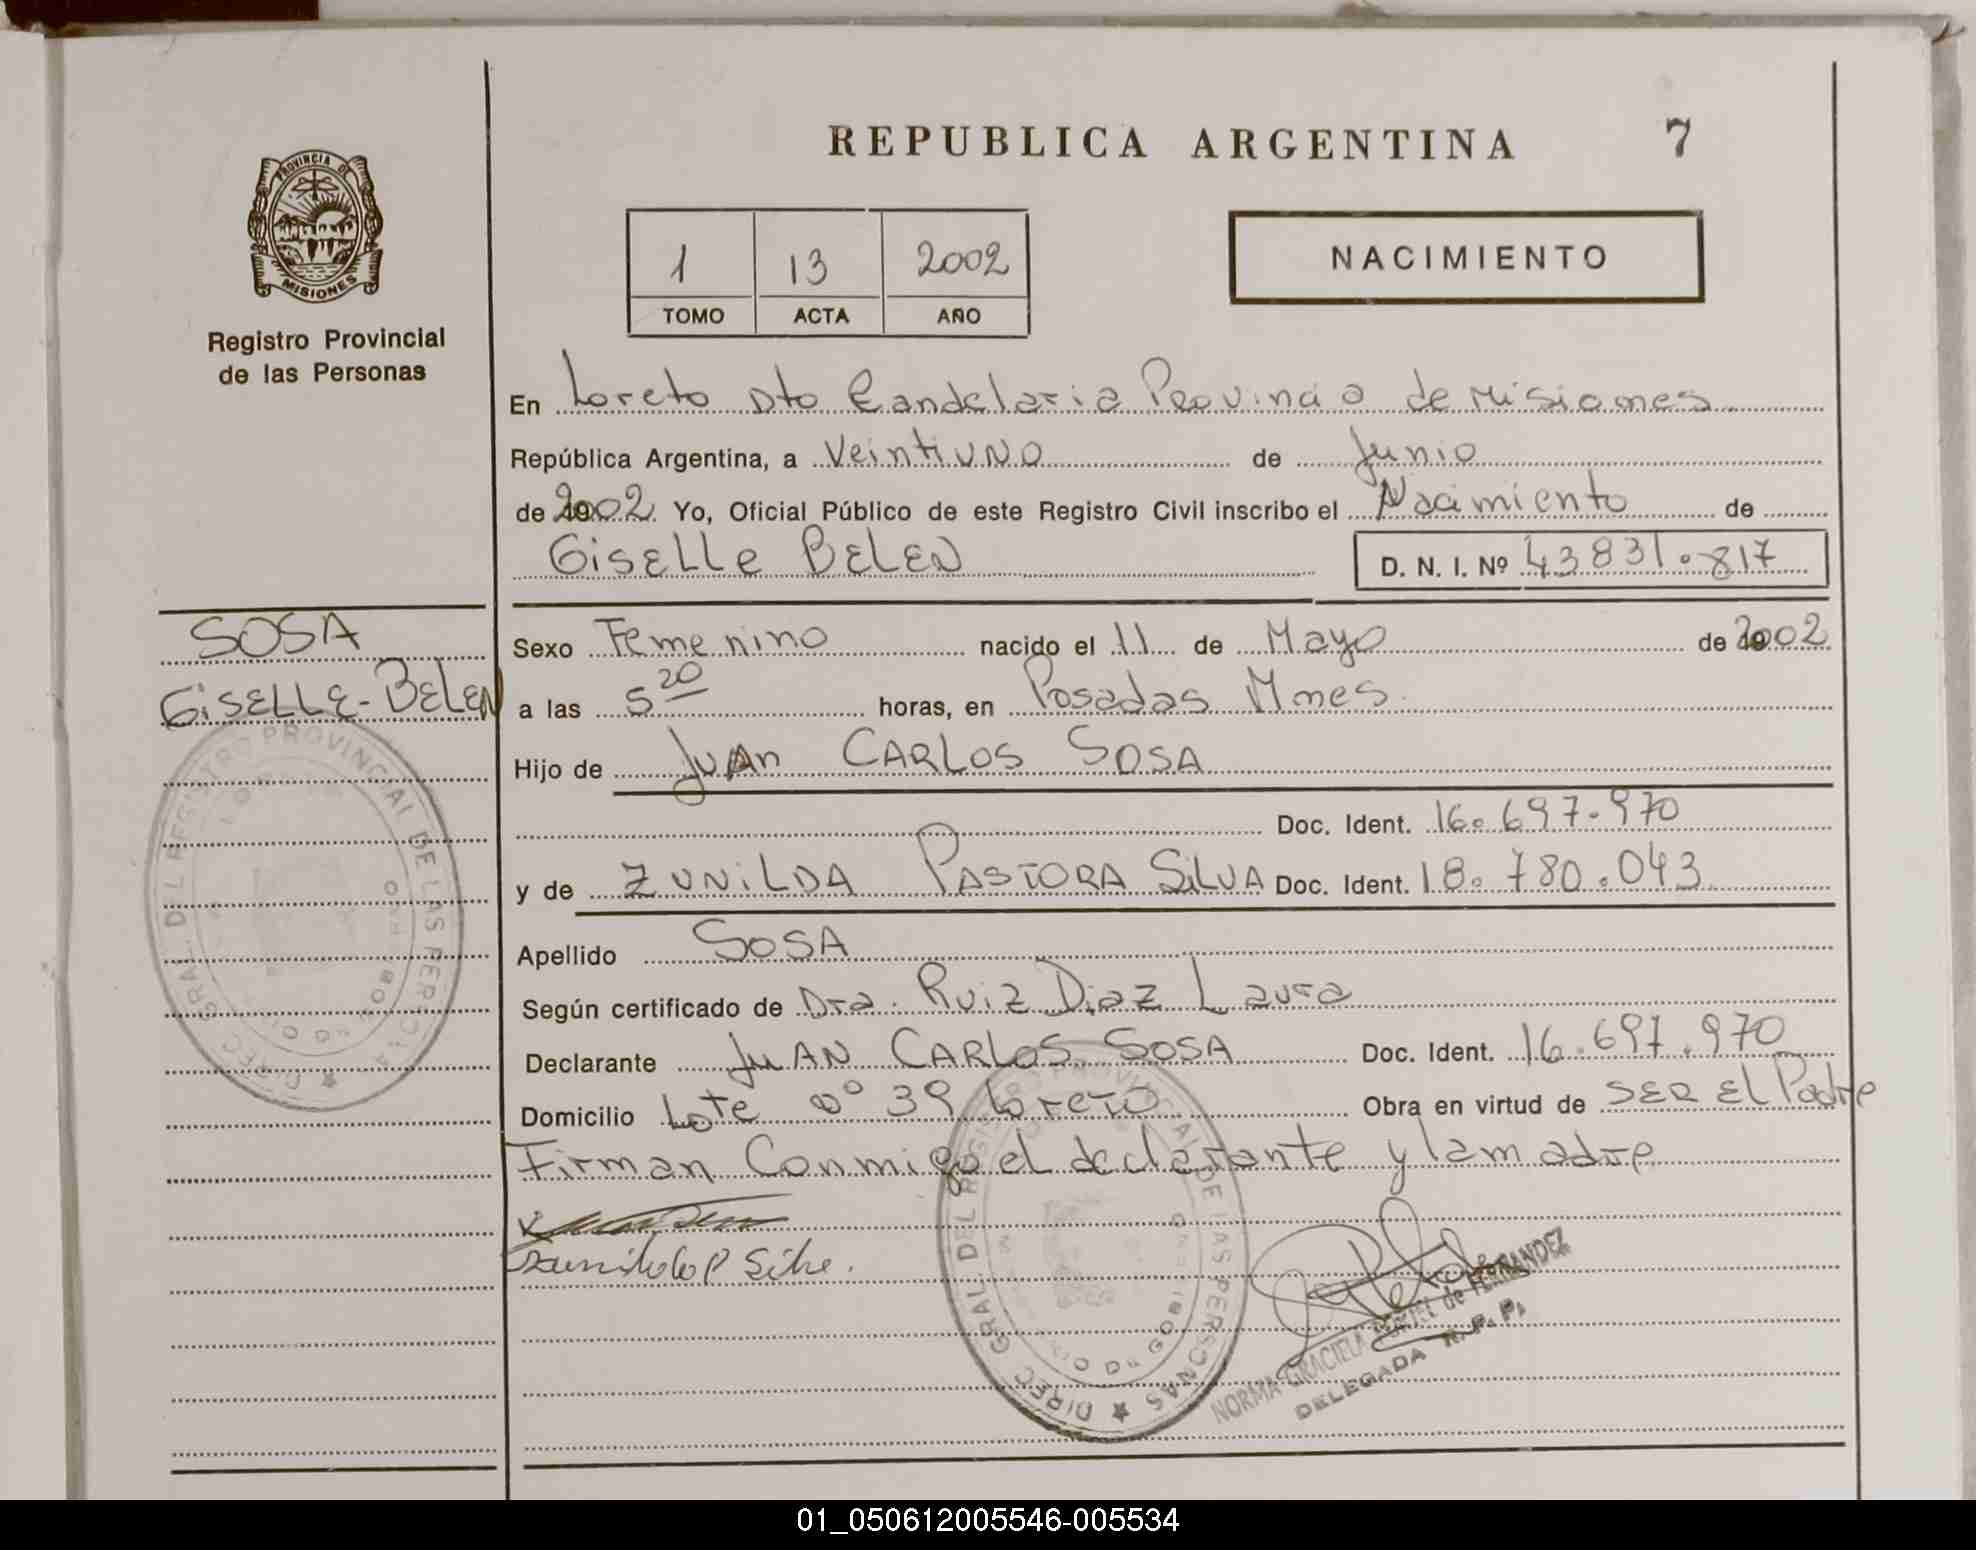 REPUBLICA ARGENTINA
7
PROVINCIA DE
MISIONES
Registro Provincial
de las Personas
1 13 2002
TOMO ACTA AÑO
NACIMIENTO
En Loreto Dto Candelaria Provincia de Misiones
República Argentina, a Veintiuno de Junio
de 2002 Yo, Oficial Público de este Registro Civil inscribo el Nacimiento de
Giselle BELEN D. N. I. Nº 43831.817
SOSA
GiSELLE-BELEN
Sexo Femenino nacido el 11 de Mayo de 2002
a las 5 20 horas, en Posadas Mnes.
Hijo de JUAn CARLOS SOSA
Doc. Ident. 16.697.970
y de ZUNiLDA PASTORA SiLVA Doc. Ident. 18.780.043
Apellido SOSA
Según certificado de Dra. Ruiz Diaz Laura
Declarante JUAN CARLOS SOSA Doc. Ident. 16.697.970
Domicilio Lote nº 39 Loreto Obra en virtud de SER El Padre
Firman Conmigo el declarante y la madre
DIREC GRAL DEL REGISTRO PROVINCIAL DE LAS PERSONAS
DIREC GRAL DEL REGISTRO PROVINCIAL DE LAS PERSONAS
NORMA GRACIELA de FERNANDEZ
DELEGADA R. P. P.
01_050612005546-005534